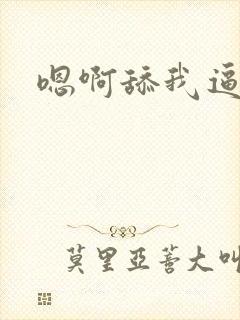 嗯啊舔我逼
莫里亞蓍大叫